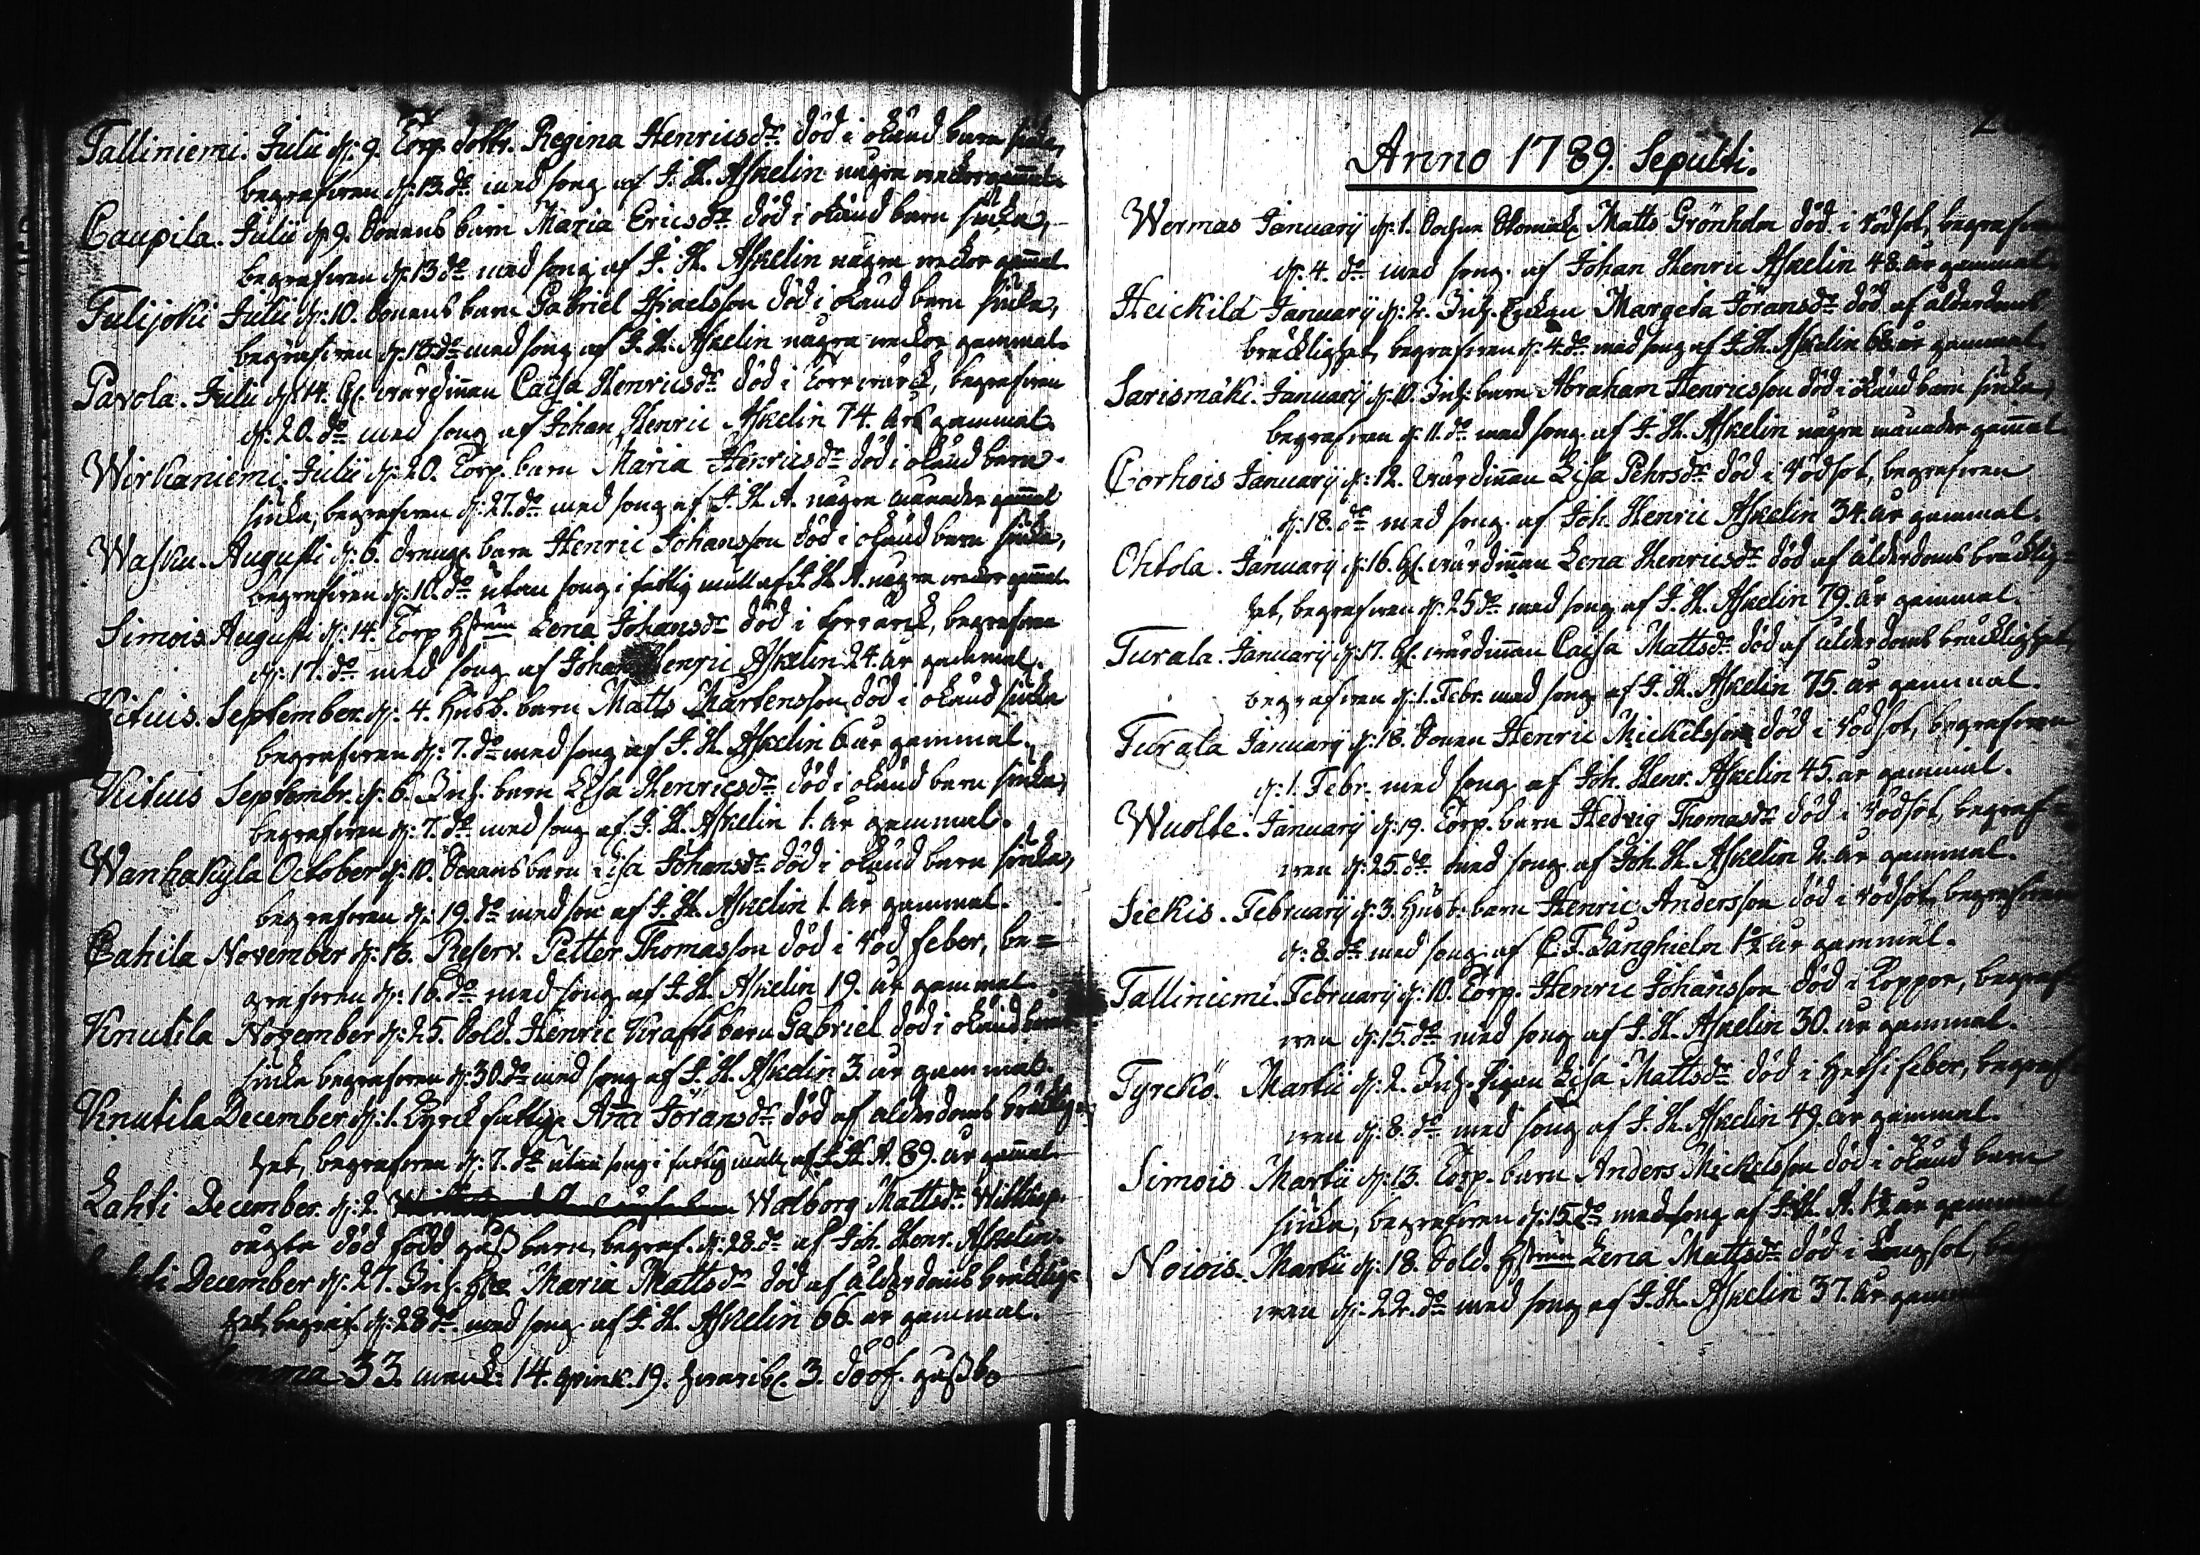 Talliniemi. Julii d: 9. Torp. dottr. Regina Henricsdr. död i okänd barn siuka,
begrafwen d: 13. do med song af J. H. Askelin några weckor gammal.
Caupila. Julii d: 9. Bonens barn Maria Ericsdr. död i okänd barn siuka,
begrafwen d: 13 do med song af J. H. Askelin några weckor gammal.
Tulijoki Julii d: 10. Bonens barn Gabriel Israelsson död i okänd barn siuka,
begrafwen d: 13. do med song af J. H. Askelin några weckor gammal.
Pavola. Julii d: 14. Gl. wärdinnan Caisa Henricsdr. död i Torrwärck, begrafwen
d: 20. do med song af Johan Henric Askelin 74. åhr gammal.
Wirkaniemi. Julii d: 20. Torp. barn Maria Henricsdr. död i okänd barn
siuka, begrafwen d: 27. do med song af J. H. A. några månader gammal
Wasku. Augusti d: 6. drengs barn Henric Johansson död i okänd barn siuka,
begrafwen d: 10. do utan song i fattig mull af J. H. A. några weckor gammal.
Simois. Augusti d: 14. Torp. hustrun Lena Johansdr. död i torrwärck, begrafwen
d: 17. do med song af Johan Henric Askelin 24. år gammal.
Kituis. September. d: 4. Husb. barn Matts Mårtensson död i okänd siuka
begrafwen d: 7. do med song af J. H. Askelin 6 år gammal.
Kituis Septembr. d: 6. Inh. barn Lisa Henricsdr. död i okänd barn siuka,
begrafwen d: 7. do med song af J. H. Askelin 1. år gammal.
Wanhakylä October d: 10. Bonens barn Lisa Johansdr. död i okänd barn siuka,
begrafwen d: 19. do med son af J. H. Askelin 1. år gammal.
Cahila November d: 13. Reserv. Petter Thomasson död i röd feber, be=
grafwen d: 16. do med song af J. H. Askelin 19. år gammal.
Knutila November d: 25. Sold. Henric Krafts barn Gabriel död i okänd barn
siuka begrafwen d: 30. do med song af J. H. Askelin 3. år gammal.
Knutila December d: 1. Kyrck fattige Ann Jöransdr. död af ålderdoms bräcklig=
het, begrafwen d: 7. do utan song i fattig mull af J. H. A. 89. år gammal.
Lahti December. d: 2. Walborg Mattsdr.
oägta död född gossbarn, begraf. d: 28. do af Joh. Henr. Askelin.
December d: 27. Inh. Maria Mattsdr. död af ålderdoms bräcklig=
het, begraf. d: 28 do. med song af J. H. Askelin 66. år gammal.
Summa 33. mank: 14. qvink. 19. 3. dööf. gossba
Anno 1789. Sepulti.
Wermas January d: 1. Matts Grönholm död i rödsot, begrafwen
d: 4. do med song af Johan Henric Askelin 48. år gammal.
Heickilä January d: 2. Inh. Enckan Margeta Jöransdr. död af ålderdoms
bräcklighet, begrafwen d: 4. do med song af J. H. Askelin år gammal.
Sarismäki. January d: 10. Inh: barn Abraham Henricsson död i okänd barn siuka,
begrafwen d: 11. do med song af J. H. Askelin några månader gammal
Corhois January d: 12. wärdinnan Lisa Pehrsdr. död i rödsot, begrafwen
d: 18. do med song af Joh. Henric Askelin 34. år gammal.
Ohtola. January d: 16. Gl. wärdinnan Lena Henricsdr. död af ålderdoms bräcklig=
het, begrafwen d: 25 do med song af J. H. Askelin 79. år gammal.
Turala. January d: 17. Gl. wärdinnan Caisa Mattsdr. död af ålderdoms bräcklighet,
begrafwen d: 1. Febr. med song af J. H. Askelin 75. år gammal.
Turala January d: 18. Bonen Henric Mickelsson död i rödsot, begrafwen
d: 1. Febr. med song af Joh. Henr. Askelin 45. år gammal.
Wuolte. January d: 19. Torp. barn Hedvig Thomasdr. död i rödsot, begraf=
wen d: 25. do med song af Joh. H. Askelin 2. år gammal.
Siekis. February d: 3. Husb. barn Henric Andersson död i rödsot, begrafwen
d: 8. do med song af C. F. Langhielm 1½ år gammal.
Talliniemi. February d: 10. Torp. Henric Johansson död i Koppor, begraf
wen d: 15. do med song af J. H. Askelin 30. år gammal.
Tyrckö. Martii d: 2. Inh. Pigan Lisa Mattsdr. död i hetsi feber, begraf
wen d: 8. do med song af J. H. Askelin 49. år gammal.
Simois Martii d: 13. Torp. barn Anders Mickelsson död i okänd barn
siuka, begrafwen d: 15. do med song af J. H. A. 1½ år gammal
Noiois. Martii d: 18. Sold. hustrun Lena Mattsdr. död i Lungsot,
wen d: 22. do med song af J. H. Askelin 37. år